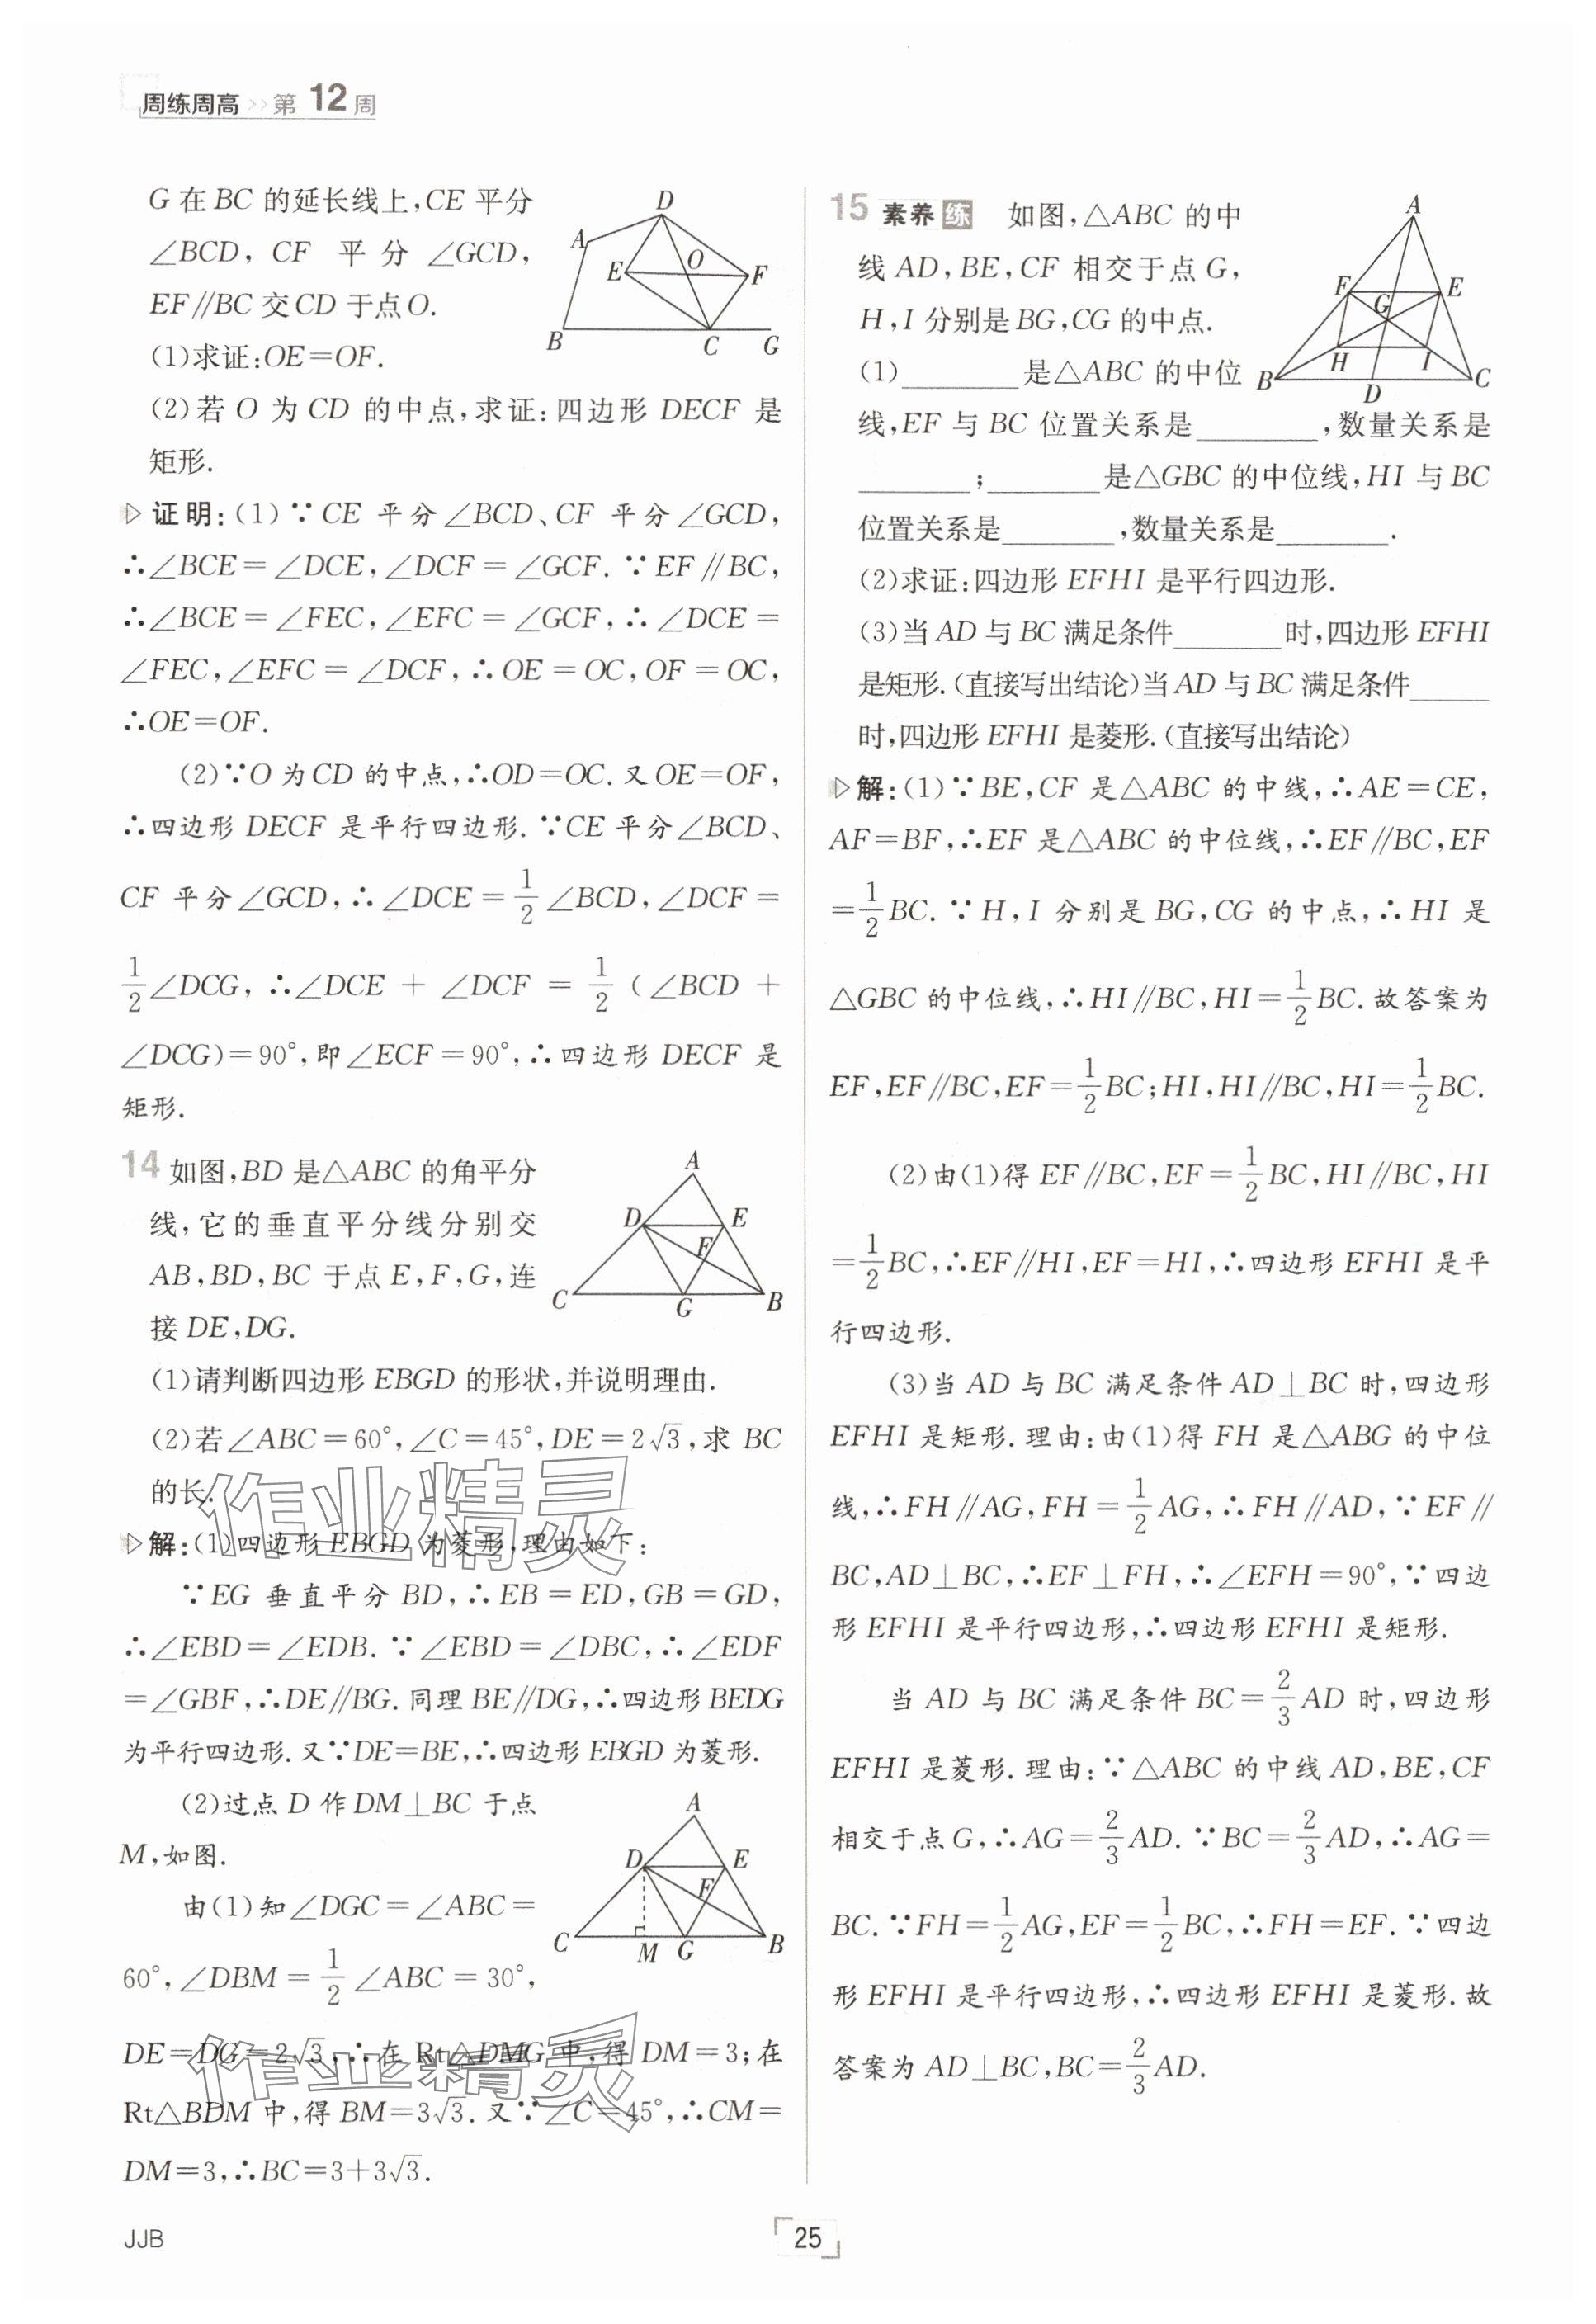 周练周高 >> 第 12 周
G 在 BC 的延长线上,CE 平分
∠BCD, CF 平 分 ∠GCD,
EF∥BC 交 CD 于点 O.
(1)求证:OE=OF.
(2)若 O 为 CD 的中点,求证:四边形 DECF 是
矩形.
D
A
E
O
F
B
C
G
▷证明:(1)∵CE 平分∠BCD、CF 平分∠GCD,
∴∠BCE=∠DCE,∠DCF=∠GCF. ∵EF∥BC,
∴∠BCE=∠FEC,∠EFC=∠GCF,∴∠DCE=
∠FEC,∠EFC=∠DCF,∴OE=OC,OF=OC,
∴OE=OF.
(2)∵O 为 CD 的中点,∴OD=OC. 又 OE=OF,
∴四边形 DECF 是平行四边形. ∵CE 平分∠BCD、
CF 平分∠GCD,∴∠DCE=1/2∠BCD,∠DCF=
1/2∠DCG,∴∠DCE + ∠DCF = 1/2(∠BCD +
∠DCG)=90°,即∠ECF=90°,∴四边形 DECF 是
矩形.
14 如图,BD 是△ABC 的角平分
线,它的垂直平分线分别交
AB,BD,BC 于点 E,F,G,连
接 DE,DG.
(1)请判断四边形 EBGD 的形状,并说明理由.
(2)若∠ABC=60°,∠C=45°,DE=2√3,求 BC
的长.
A
D
E
F
C
G
B
▷解:(1)四边形 EBGD 为菱形,理由如下:
∵EG 垂直平分 BD,∴EB=ED,GB=GD,
∴∠EBD=∠EDB. ∵∠EBD=∠DBC,∴∠EDF
=∠GBF,∴DE∥BG. 同理 BE∥DG,∴四边形 BEDG
为平行四边形. 又∵DE=BE,∴四边形 EBGD 为菱形.
(2)过点 D 作 DM⊥BC 于点
M,如图.
由(1)知∠DGC=∠ABC=
60°,∠DBM=1/2∠ABC=30°,
A
D
E
F
C
M
G
B
DE=DG=2√3,∴在 Rt△DMG 中,得 DM=3;在
Rt△BDM 中,得 BM=3√3. 又∵∠C=45°,∴CM=
DM=3,∴BC=3+3√3.
作业精灵
作业精灵
15 素养 练 如图,△ABC 的中
线 AD,BE,CF 相交于点 G,
H,I 分别是 BG,CG 的中点.
(1)________是△ABC 的中位
线,EF 与 BC 位置关系是________,数量关系是
________;________是△GBC 的中位线,HI 与 BC
位置关系是________,数量关系是________.
(2)求证:四边形 EFHI 是平行四边形.
(3)当 AD 与 BC 满足条件________时,四边形 EFHI
是矩形.(直接写出结论)当 AD 与 BC 满足条件______
时,四边形 EFHI 是菱形.(直接写出结论)
A
F
G
E
H
I
B
D
C
▷解:(1)∵BE,CF 是△ABC 的中线,∴AE=CE,
AF=BF,∴EF 是△ABC 的中位线,∴EF∥BC,EF
=1/2BC. ∵H,I 分别是 BG,CG 的中点,∴HI 是
△GBC 的中位线,∴HI∥BC,HI=1/2BC. 故答案为
EF,EF∥BC,EF=1/2BC;HI,HI∥BC,HI=1/2BC.
(2)由(1)得 EF∥BC,EF=1/2BC,HI∥BC,HI
=1/2BC,∴EF∥HI,EF=HI,∴四边形 EFHI 是平
行四边形.
(3)当 AD 与 BC 满足条件 AD⊥BC 时,四边形
EFHI 是矩形. 理由:由(1)得 FH 是△ABG 的中位
线,∴FH∥AG,FH=1/2AG,∴FH∥AD,∵EF∥
BC,AD⊥BC,∴EF⊥FH,∴∠EFH=90°,∵四边
形 EFHI 是平行四边形,∴四边形 EFHI 是矩形.
当 AD 与 BC 满足条件 BC=2/3AD 时,四边形
EFHI 是菱形. 理由:∵△ABC 的中线 AD,BE,CF
相交于点 G,∴AG=2/3AD. ∵BC=2/3AD,∴AG=
BC. ∵FH=1/2AG,EF=1/2BC,∴FH=EF. ∵四边
形 EFHI 是平行四边形,∴四边形 EFHI 是菱形. 故
答案为 AD⊥BC,BC=2/3AD.
JJB
25